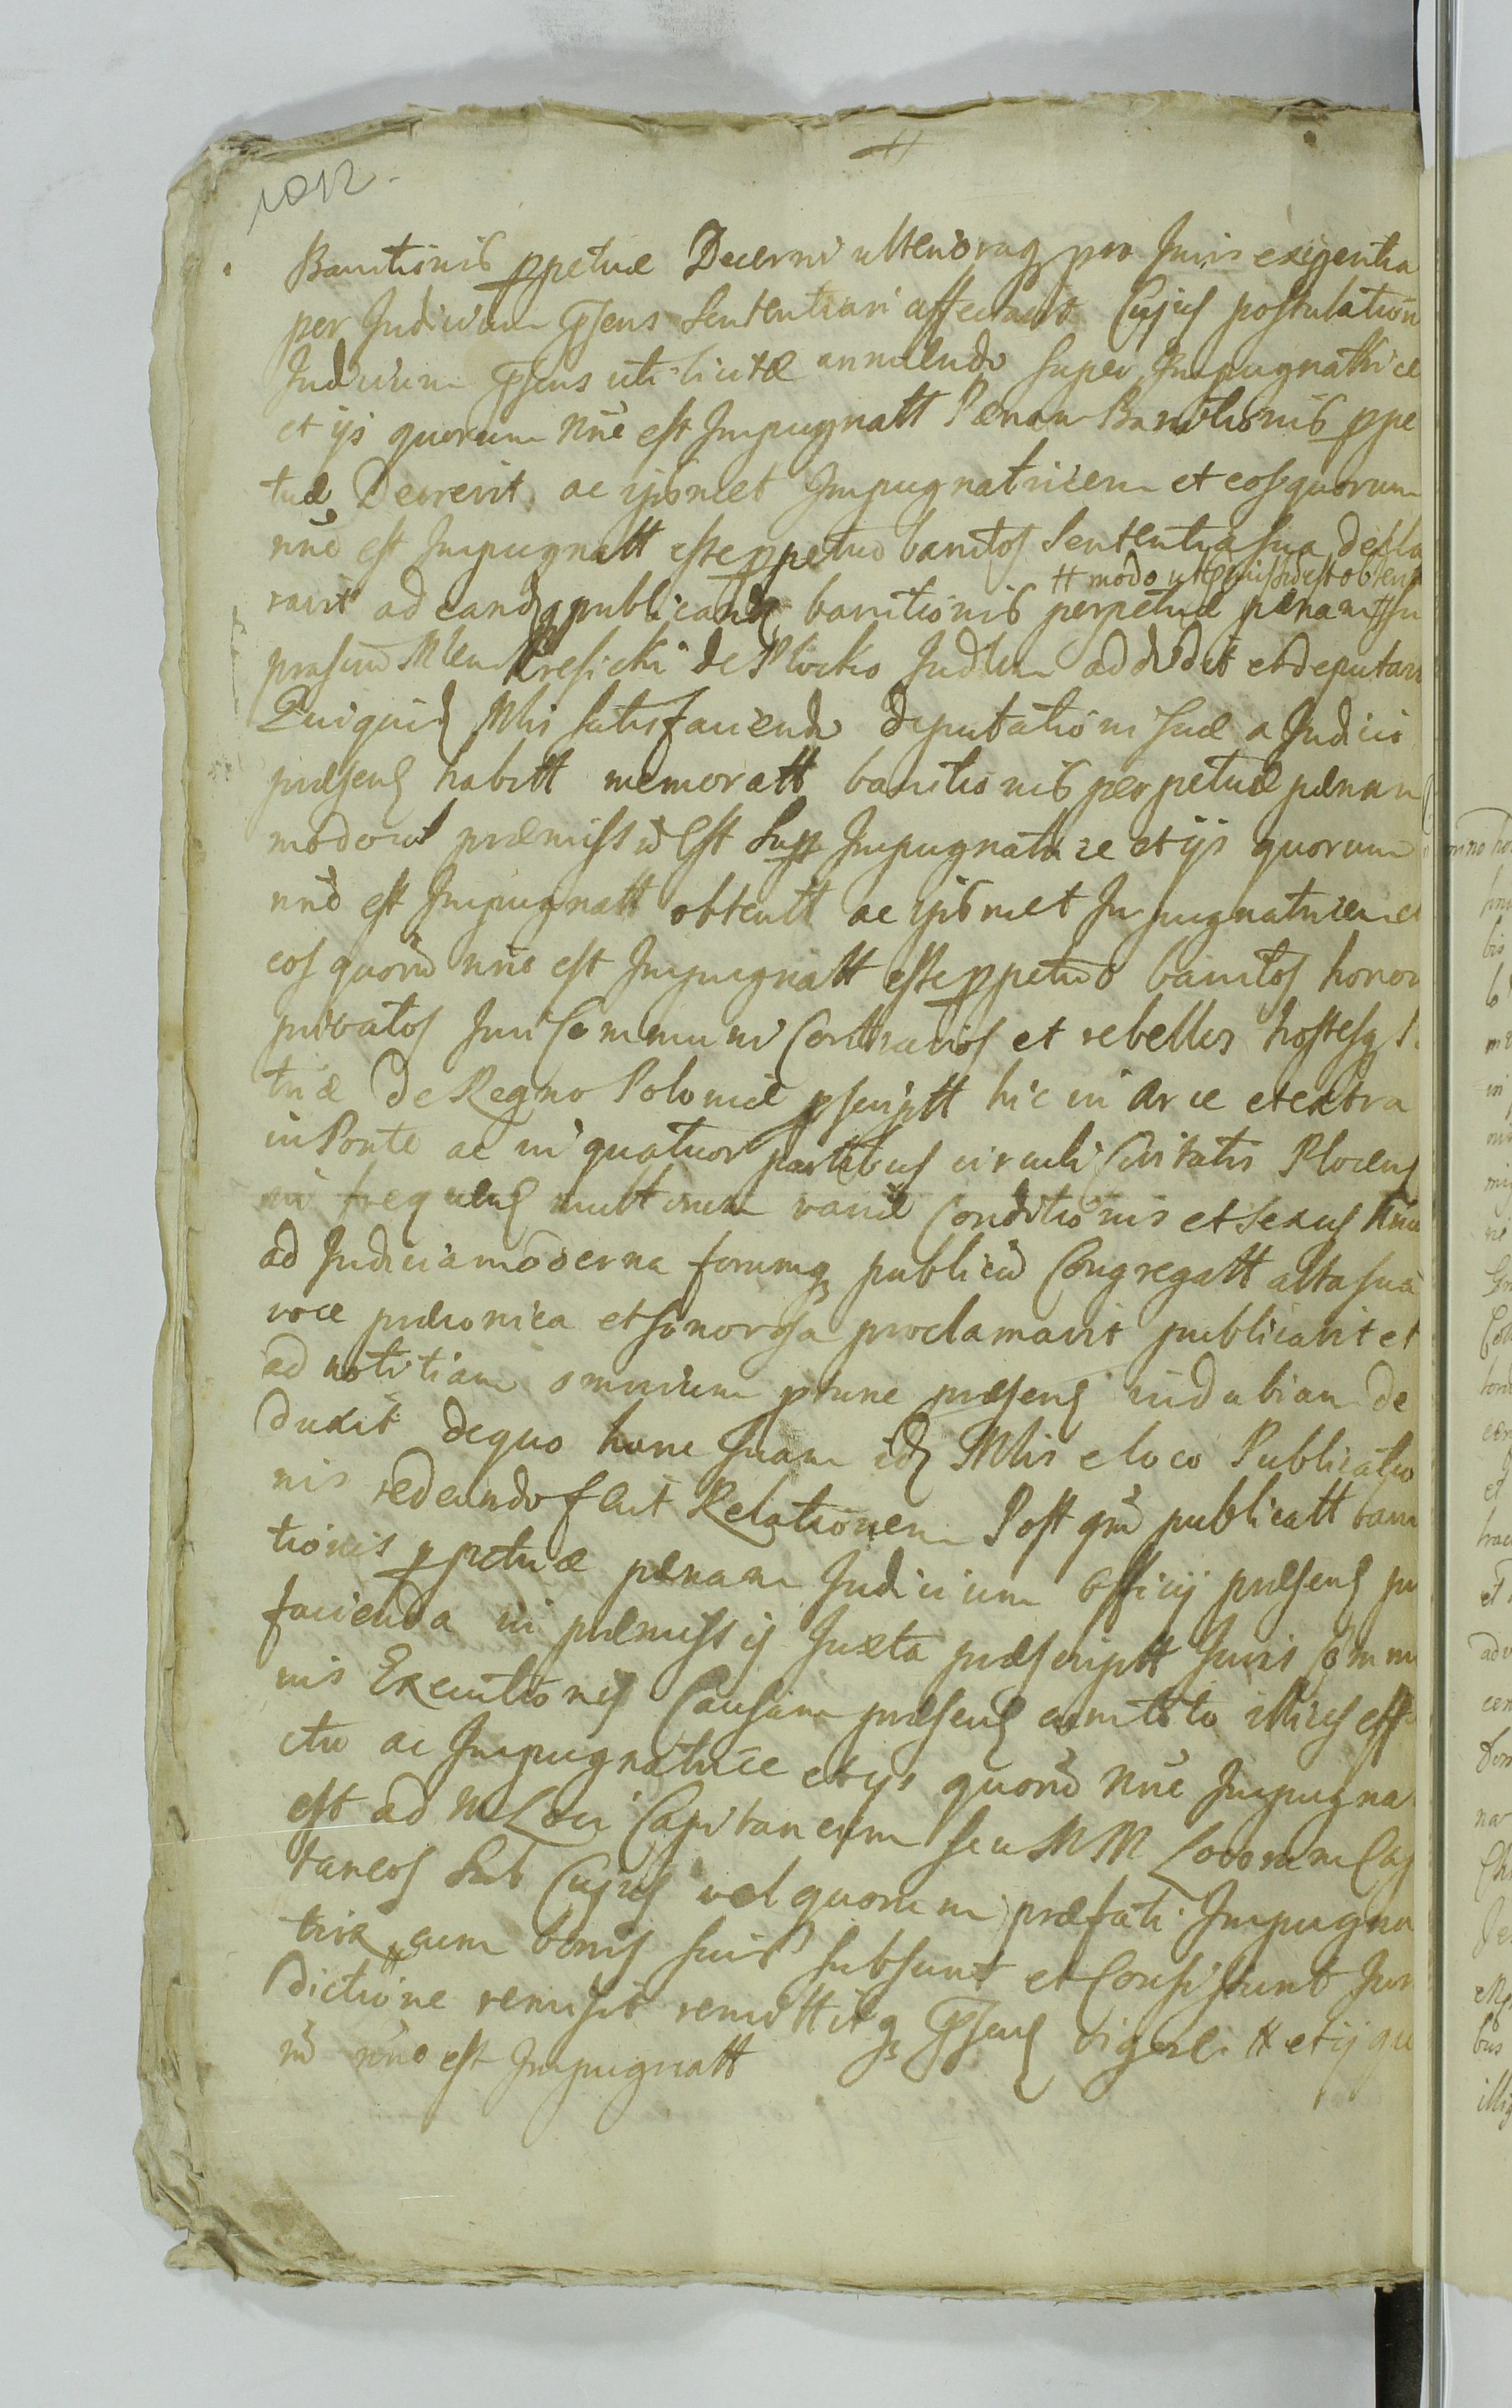 1012.
Banitionis ppetuæ Decerni ulterioraq pro Juris exigentia
per Judicium Pñsens Sententiari affectavit Cujus postulation
Judicium Pñsens uti licitæ annuendo super Impugnatrice
et ijs quorum nñe est Impugnatt Pænam Banitionis ppe
tuæ Decrevit ac ipsmet Impugnatricem et eos quorum
nñe est Impugnatt esse ppetuo banitos Sententia sua decla
# modo ut præmissũ est obtent
ravit ad eandq publicandą banitionis perpetuæ pænam #
Mlem Kresicki de Plocko Judlem addidit et deputavi
Quiquidę Mlis satisfaciendo deputationi suæ a Judicio
præsenę habitt memoratt banitionis perpetuæ pænam
modo ut præmissũ est Supp Impugnatrice et ijs quorum
nñe est Impugnatt obtentt ac ipsmet Impugnatricem et
eos quorũ nñe est Impugnatt esse ppetuo banitos honor
privatos Juri Communi Contrarios et rebelles hostesq P
triæ De Regno Poloniæ pscriptt hic in Arce et extra
in Ponte ac in quatuor partibus circuli Civitatis Plocenę
in frequenę multorum variæ Conditionis et Sexus
ad Judicia moderna forumq publicũ Congregatt alta sua
voce præconica et sonorosa proclamavit publicavit et
ad notitiam omnium ptunc præsenę indubiam de
duxit dequo hanc suam idę Mlis e loco Publicatio
nis redeundo fecit Relationem Post qm̃ publicatt bani
tionis ppetuæ pænam Judicium Officij præsenę pro
facienda in præmissis Juxta præscriptt Juris Commu
nis Executionis Causam præsenę cum toto illius effe
ctu ac Impugnatrice et ijs quorũ nñe Impugna
est ad M Loci Capitaneum seu MM Locorum Cap
taneos Sub Cujus vel quorum præfati Impugna
trix # cum bonis suis subsunt et Consistunt Juris
dictione remisit remittitq Pñsenę vigore # et ij quo
rũ nñe est Impugnatt